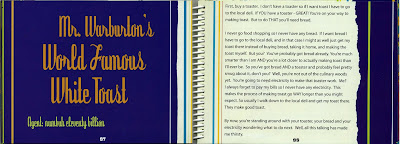 Mr. Warburton's
World Famous
White Toast
Agent: numbuh eleventy billion
87
First, buy a toaster. I don't have a toaster so if I want toast I have to go
to the local deli. IF YOU have a toaster - GREAT! You're on your way to
making toast. But to do THAT you'll need bread.
I never go food shopping so I never have any bread. If I want bread I
have to go to the local deli, and in that case I might as well just get my
toast there instead of buying bread, taking it home, and making the
toast myself. But you? You've probably got bread already. You're much
smarter than I am AND you're a lot closer to actually making toast than
I'll ever be. So you've got bread AND a toaster and probably feel pretty
smug about it, don't you? Well, you're not out of the culinary woods
yet. You're going to need electricity to make that toaster work. Me?
I always forget to pay my bills so I never have any electricity. This
makes the process of making toast go WAY longer than you might
expect. So usually I walk down to the local deli and get my toast there.
They make good toast.
By now you're standing around with your toaster, your bread and your
electricity wondering what to do next. Well, all this talking has made
me thirsty.
88